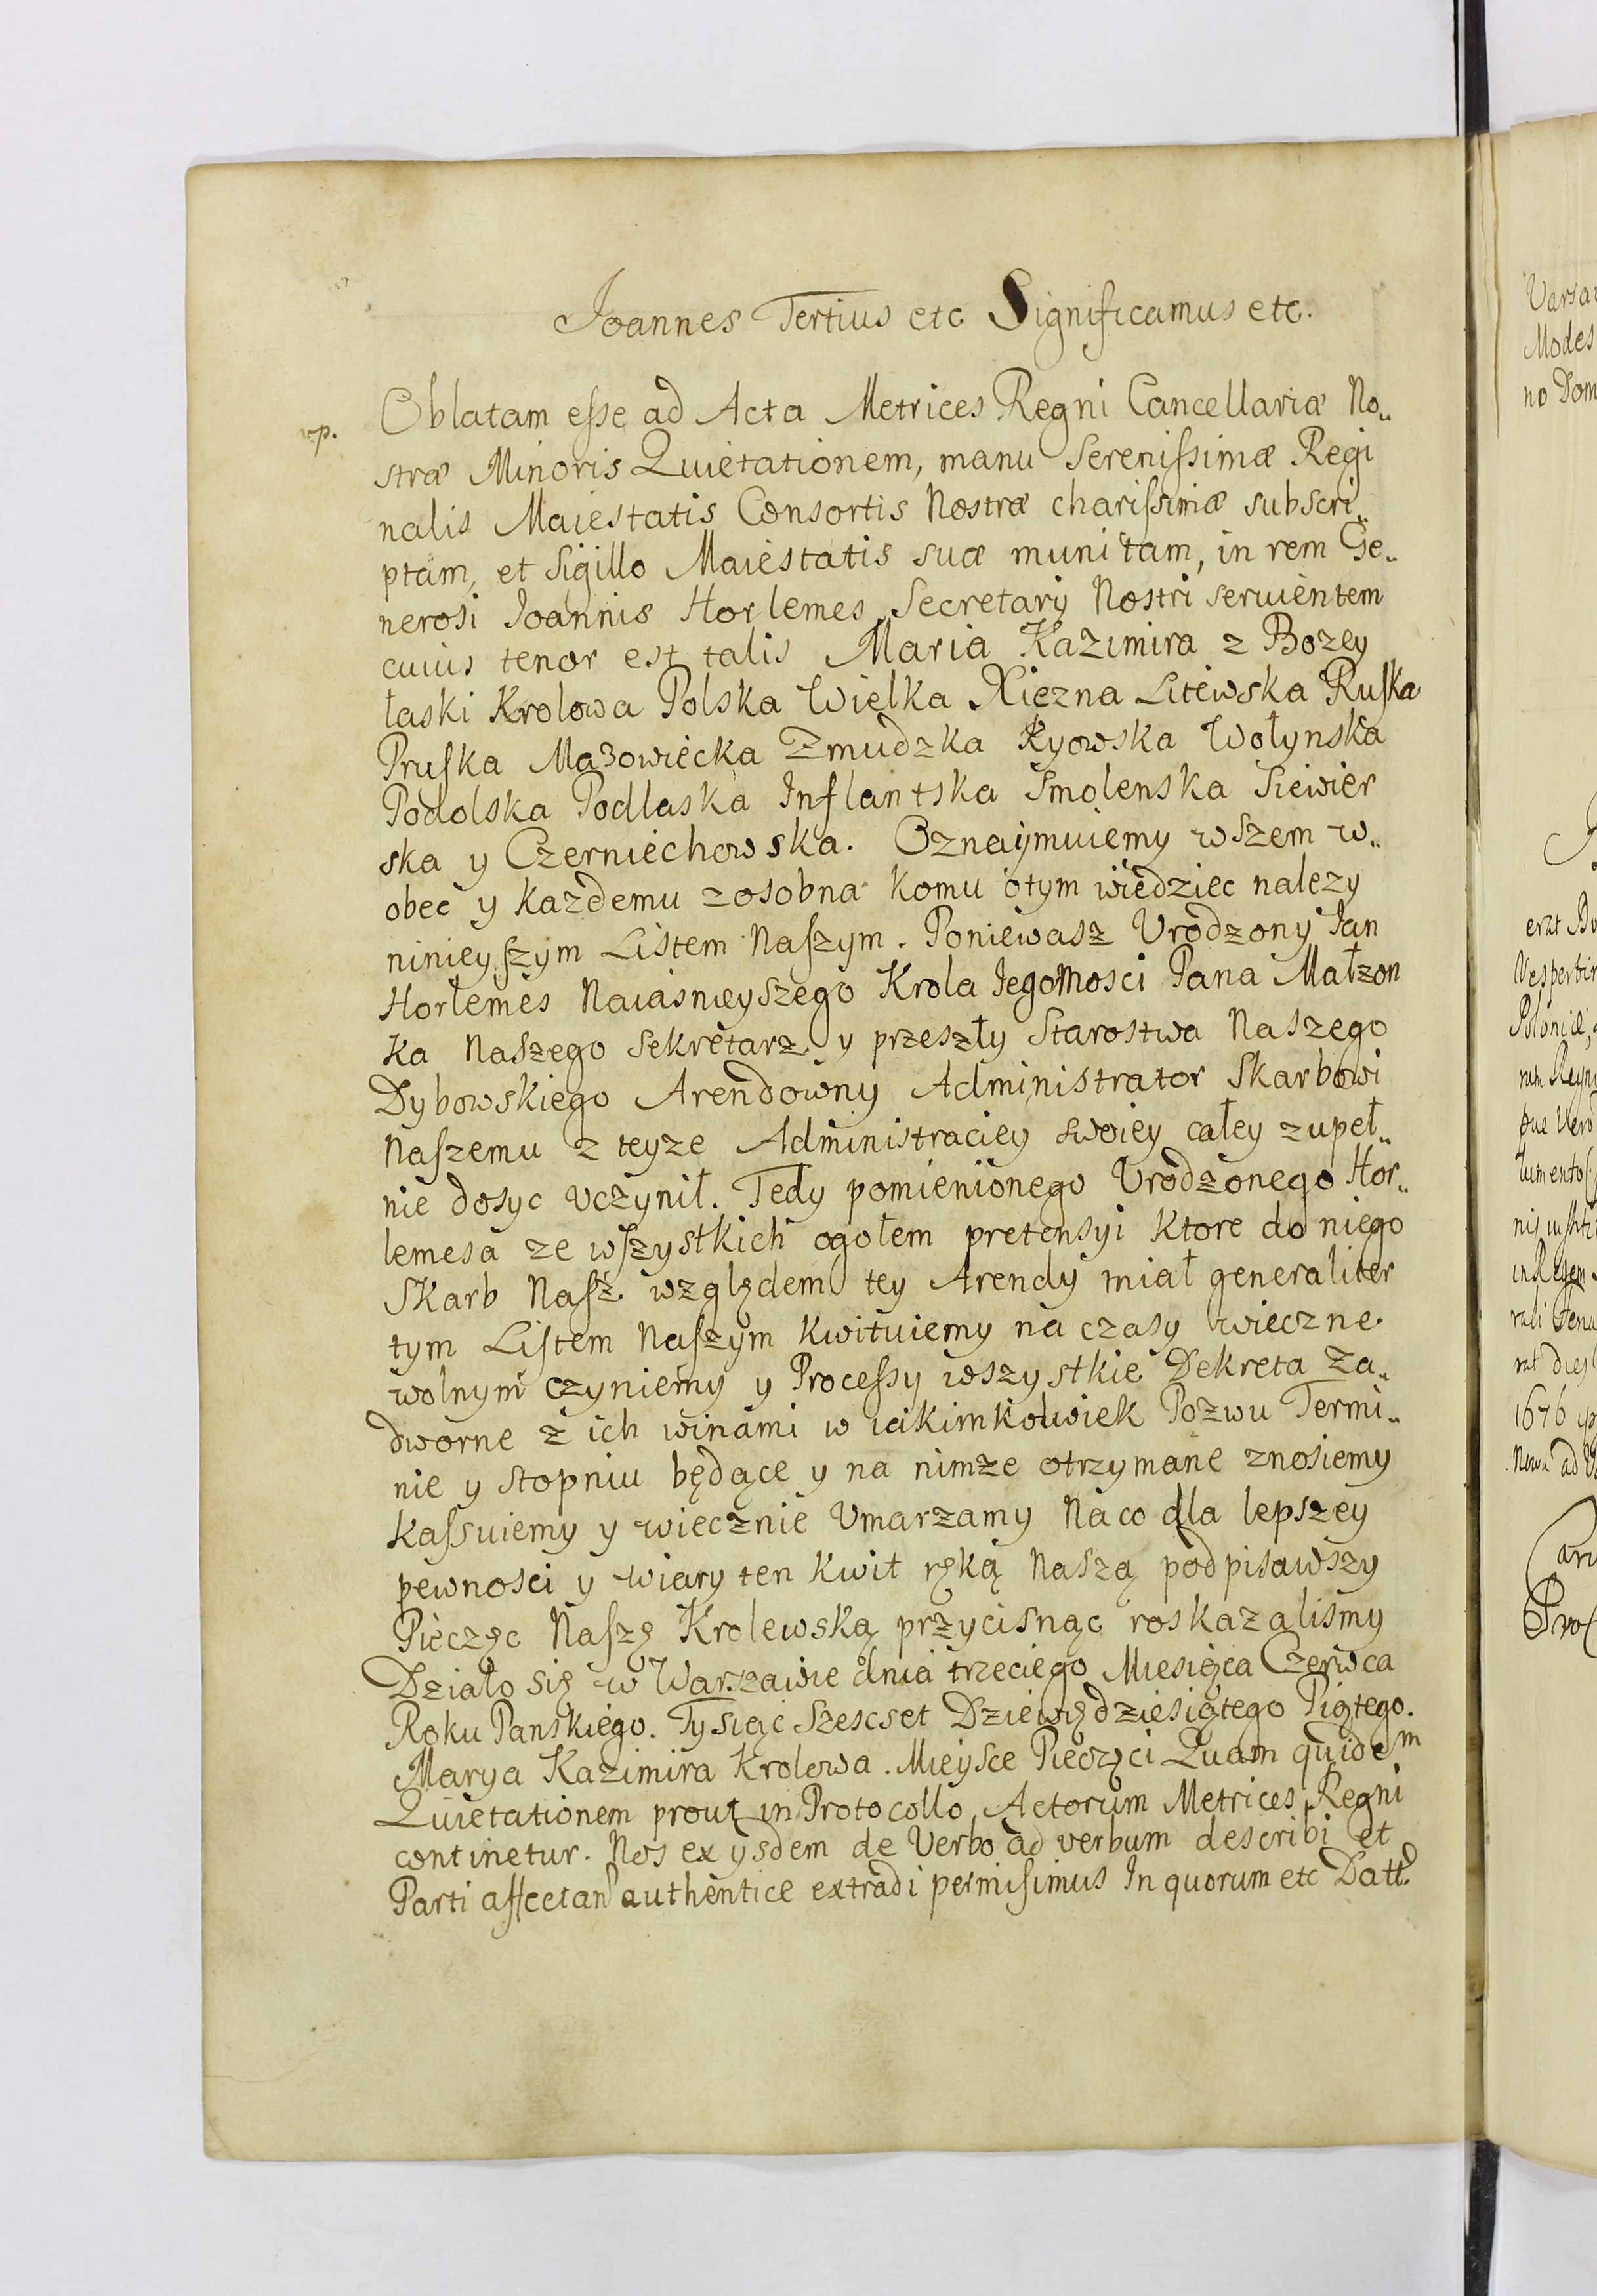 Joannes Tertius etc Significamus etc.
Oblatam esse ad Acta Metrices Regni Cancellariæ No„
vp.
stræ Minoris Quietationem, manu Serenissimæ Regi
nalis Maiestatis Consortis Nostræ charissimæ subscri„
ptam, et Sigillo Maiestatis suæ munitam, in rem Ge„
nerosi Joannis Horlemes Secretarij Nostri servientem
cuius tenor est talis Maria Kazimira z Bozey
łaski Krolowa Polska Wielka Xiezna Litewska Ruska
Pruska Mazowiecka Zmudzka Kyowska Wołynska
Podolska Podlaska Inflantska Smolenska Siewier
ska y Czerniechowska. Oznaymuiemy wszem w„
obec y kazdemu zosobna komu otym wiedziec nalezy
ninieyszym Listem Naszym. Poniewasz Vrodzony Jan
Horłemes Naiasnieyszego Krola Jegomosci Pana Małzon
ka Naszego Sekretarz y przeszły Starostwa Naszego
Dybowskiego Arendowny Administrator Skarbowi
Naszemu z teyze Administraciey swoiey całey zupeł„
nie dosyc vczynił. Tedy pomienionego Vrodzonego Hor„
lemesa ze wszystkich ogołem pretensyi ktore do niego
Skarb Nasz względem tey Arendy miał generaliter
tym Listem Naszym kwituiemy na czasy wieczne
wolnym czyniemy y Processy wszystkie Dekreta Za„
dworne z ich winami w iakimkolwiek Pozwu Termi„
nie y stopniu będące y na nimze otrzymane znosiemy
kassuiemy y wiecznie Vmarzamy Na co dla lepszey
pewnosci y wiary ten kwit ręką Naszą podpisawszy
Pieczęc Naszę Krolewską przycisnąc roskazalismy
Działo się w Warszawie dnia trzeciego Miesiąca Czerwca
Roku Panskiego. Tysiąc Szescset Dziewiędziesiątego Piątego.
Marya Kazimira Krolowa. Mieysce Pieczęci Quam quidem
Quietationem prout in Protocollo Actorum Metrices Regni
continetur. Nos ex ysdem de Verbo ad verbum describi et
Parti affectan authentice extradi permisimus In quorum etc Datt.
Modes
no Dom
1676